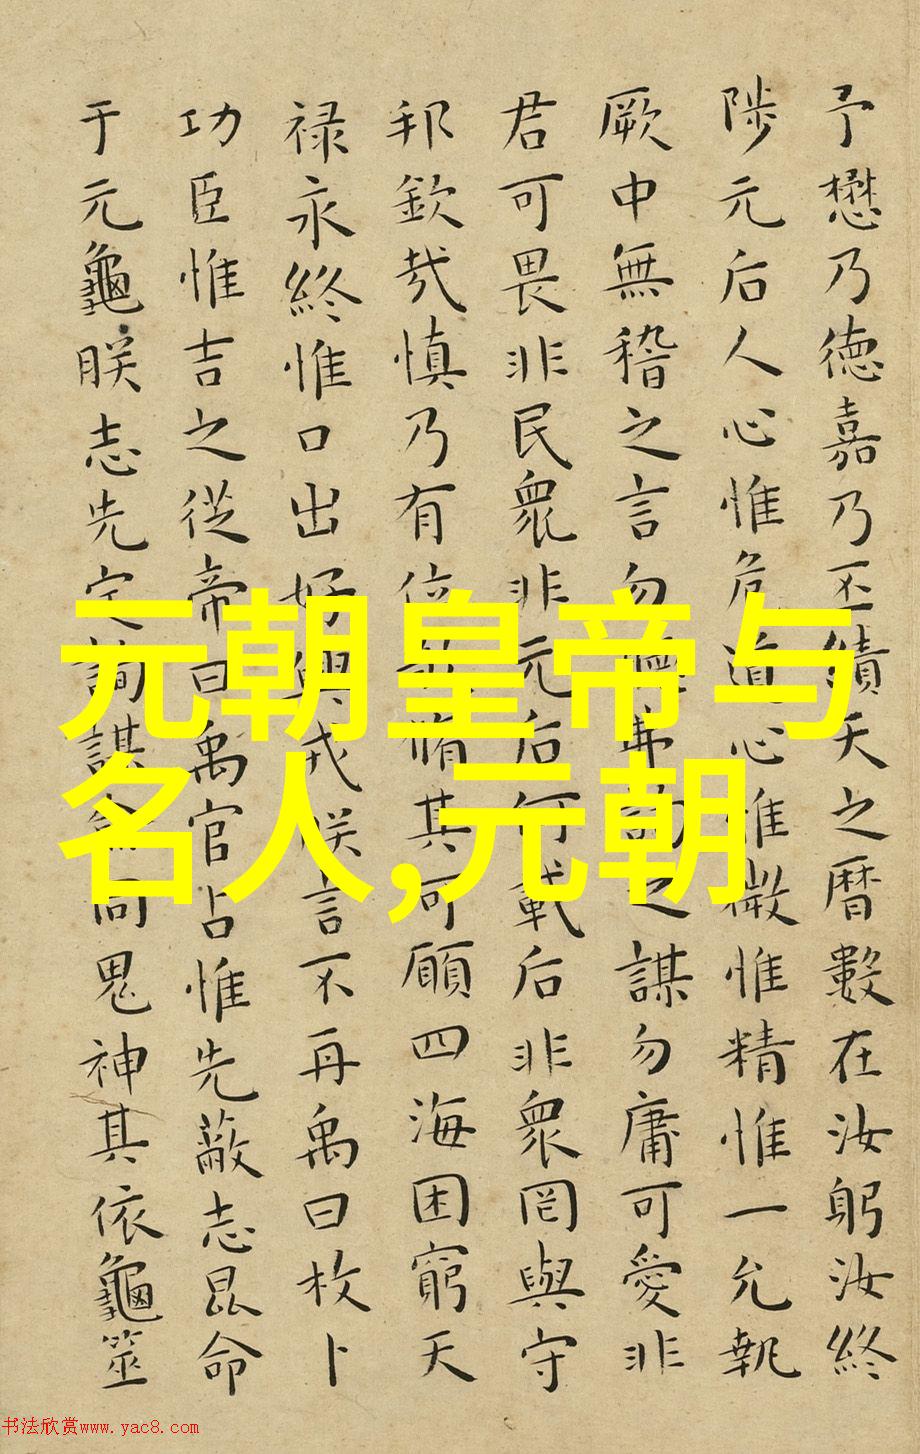 予懋乃德嘉乃丕績天之曆數在汝躬汝終
陟元后人心惟危道心惟微惟精惟一允執
厥中無稽之言勿聽弗詢之謀勿庸可愛非
君可畏非民衆非元后何載后非衆罔與守
邦欽哉慎乃有位敬脩其可願四海困窮天
禄永終惟口出好興戎朕言不再禹曰枚卜
功臣惟吉之從帝曰禹官占惟先蔽志昆命
于元龜朕志先定詢謀僉同鬼神其依龜筮
元朝皇帝与
名人,元朝
书法欣赏www.yac8.com